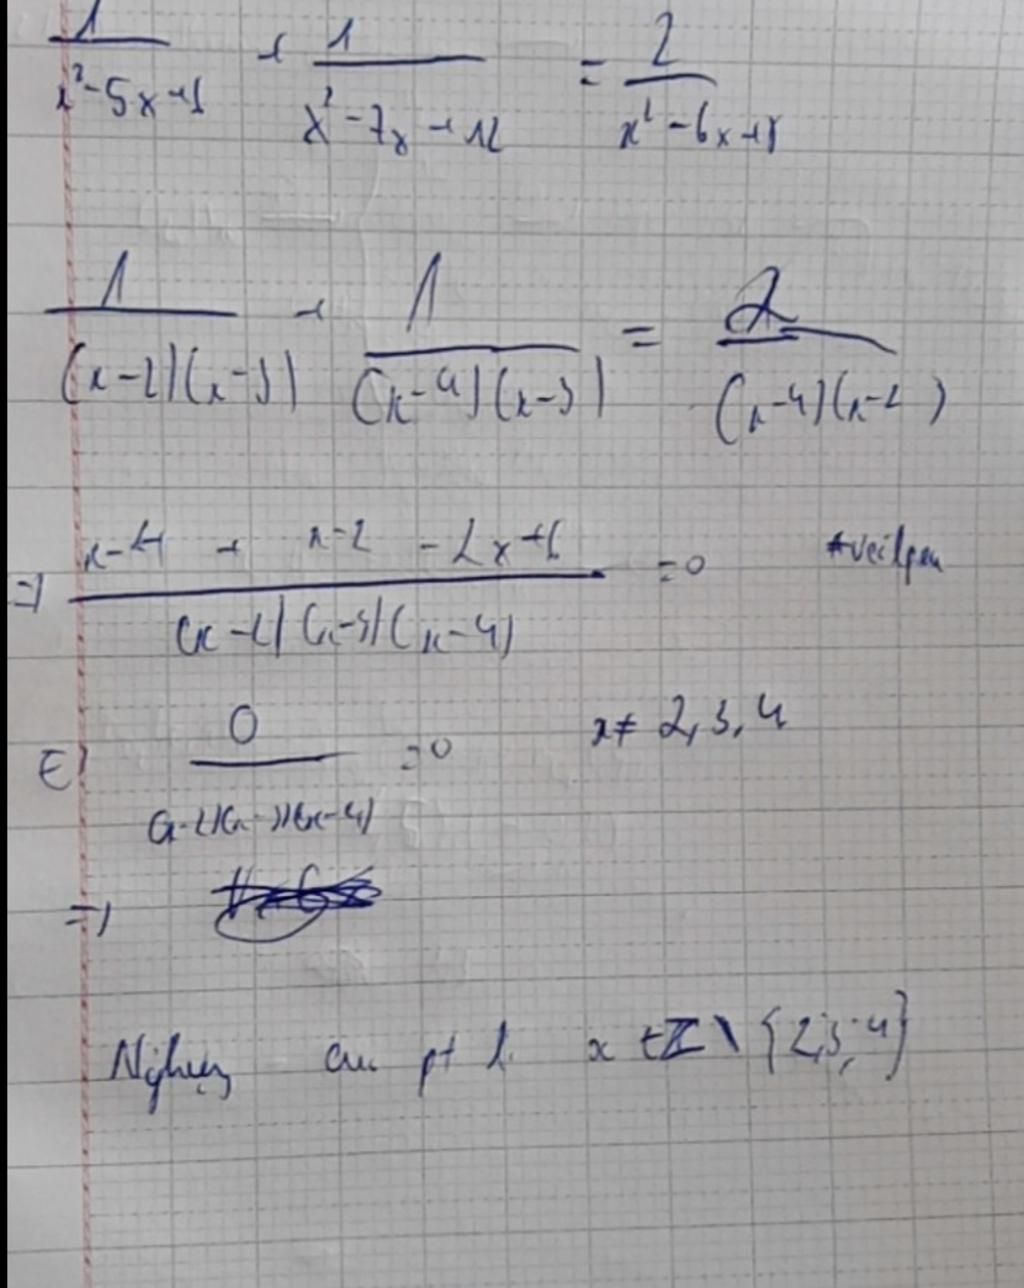 1/(x²-5x+1) + 1/(x²-7x+12) = 2/(x²-6x+8)
1/((x-2)(x-3)) + 1/((x-4)(x-3)) = 2/((x-4)(x-2))
=> (x-4 + x-2 - 2x+6)/((x-2)(x-3)(x-4)) = 0
0/((x-2)(x-3)(x-4)) = 0 x≠ 2,3,4
=>
Nghiệm của pt là x ∈ Z \ {2,3,4}